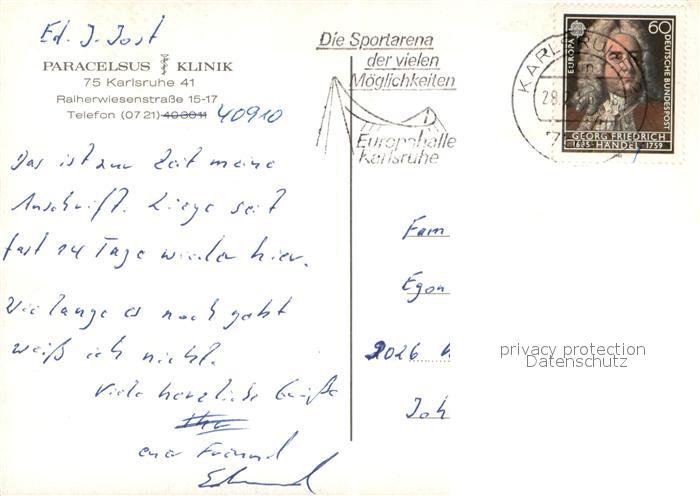 Ed. J. Jost
PARACELSUS KLINIK
75 Karlsruhe 41
Raiherwiesenstraße 15-17
Telefon (0721) 403011 40910
Das ist zur Zeit meine
Anschrift. Liege seit
fast 14 Tage wieder hier.
Wie lange es noch geht
weiß ich nicht.
Viele herzliche Grüße
Ihr
euer Freund
Edmund
Die Sportarena
der vielen
Möglichkeiten
Europahalle
Karlsruhe
KARLSRUHE
28.
75
EUROPA
60
DEUTSCHE BUNDESPOST
GEORG FRIEDRICH
1685 · HÄNDEL · 1759
Fam
Egon
2026
Joh
privacy protection
Datenschutz